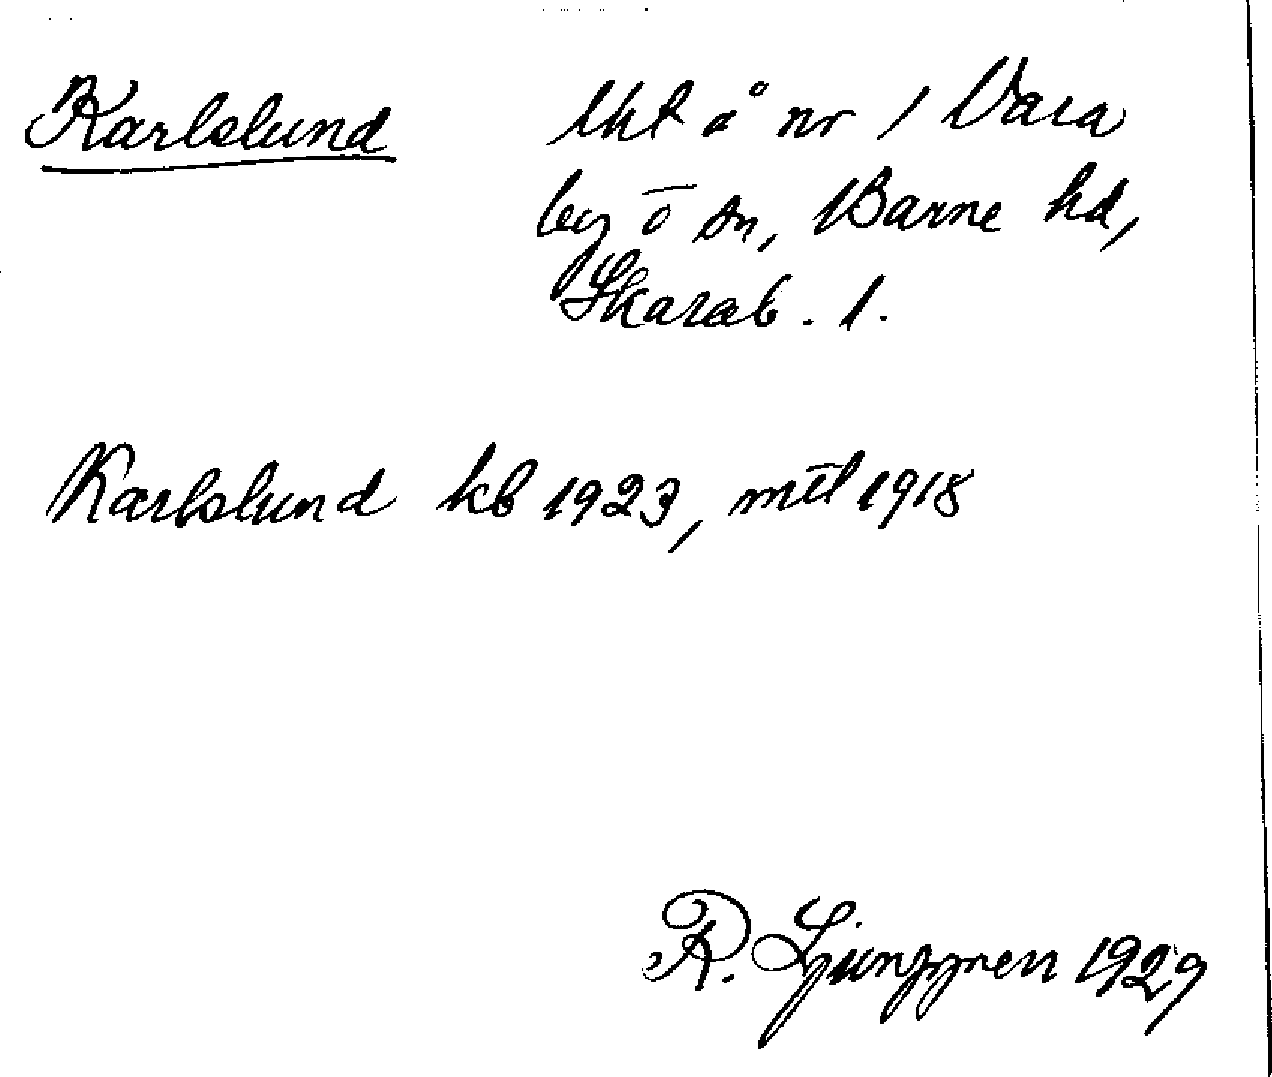 Karlslund lht å nr 1 Vara
by o sn, Barne hd,
Skarab. l.
Karlslund kb 1923, mtl 1918
R. Ljunggren 1929